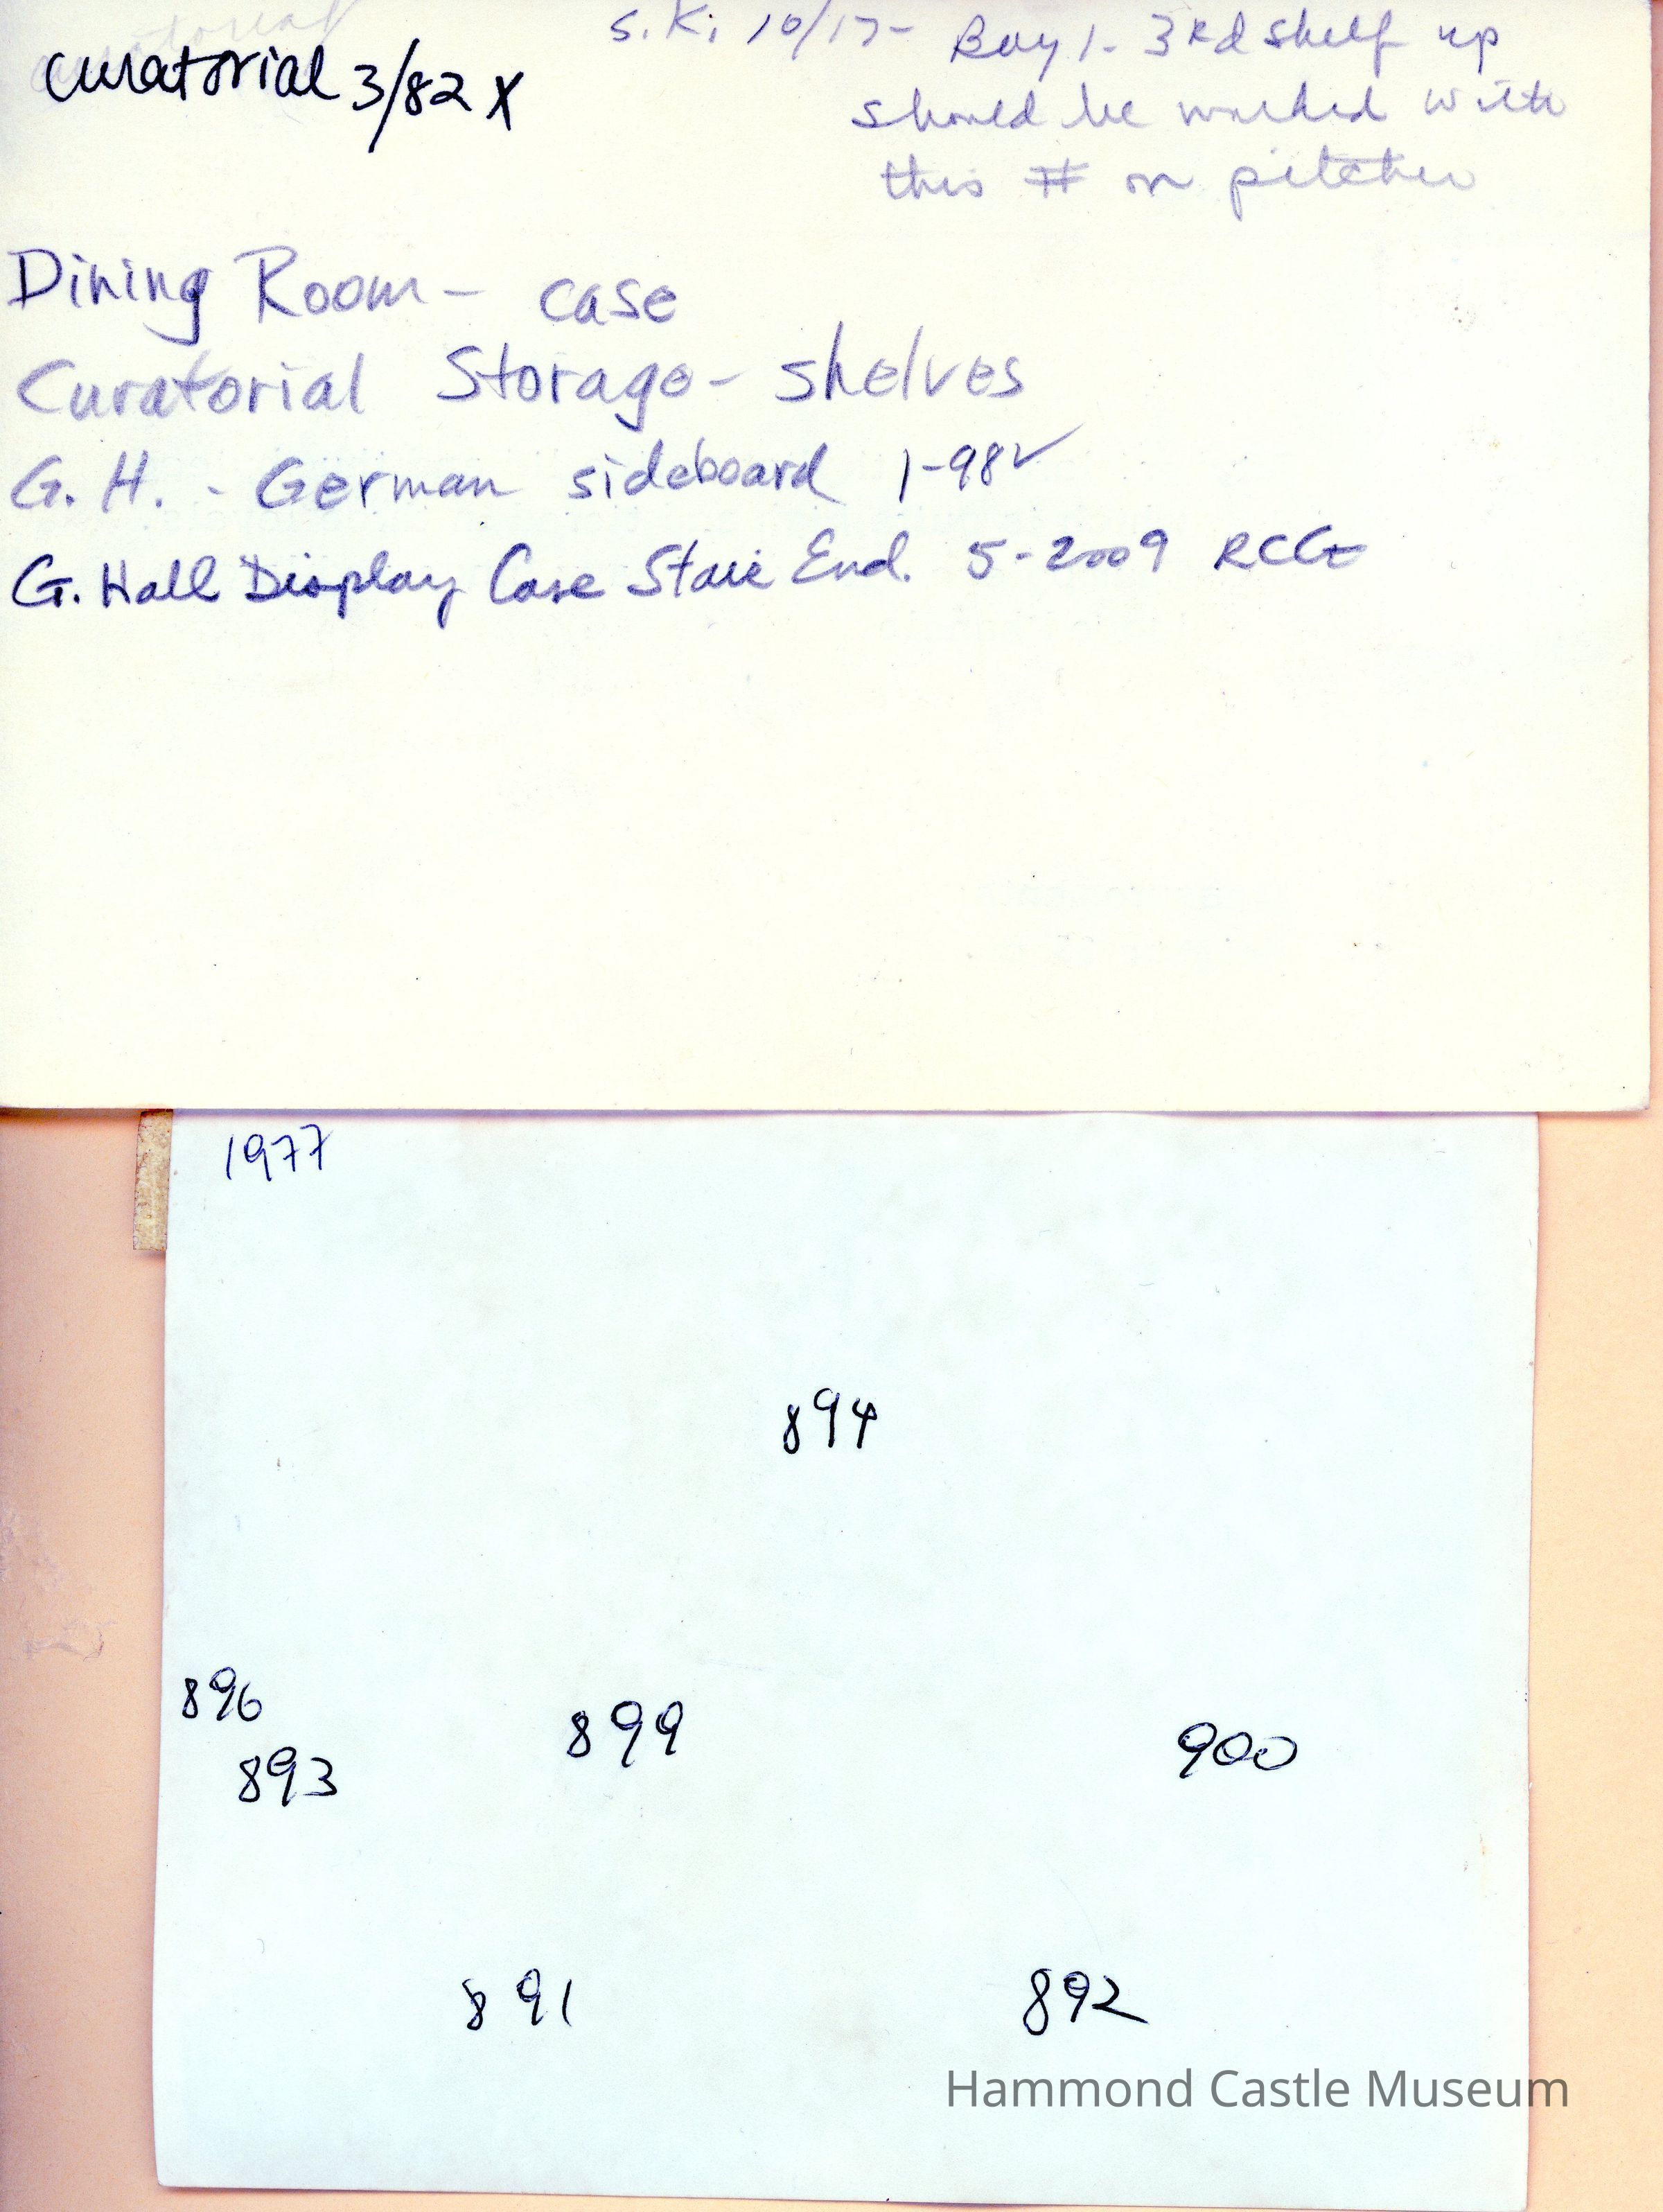 curatorial
curatorial 3/82 X
S.K. 10/17- Bay 1- 3rd shelf up
should be marked with
this # on pitcher
Dining Room - case
Curatorial Storage - shelves
G. H. - German sideboard 1-98 ✓
G. Hall Display Case Stair End. 5-2009 RCG
1977
894
896
893
899
900
891
892
Hammond Castle Museum